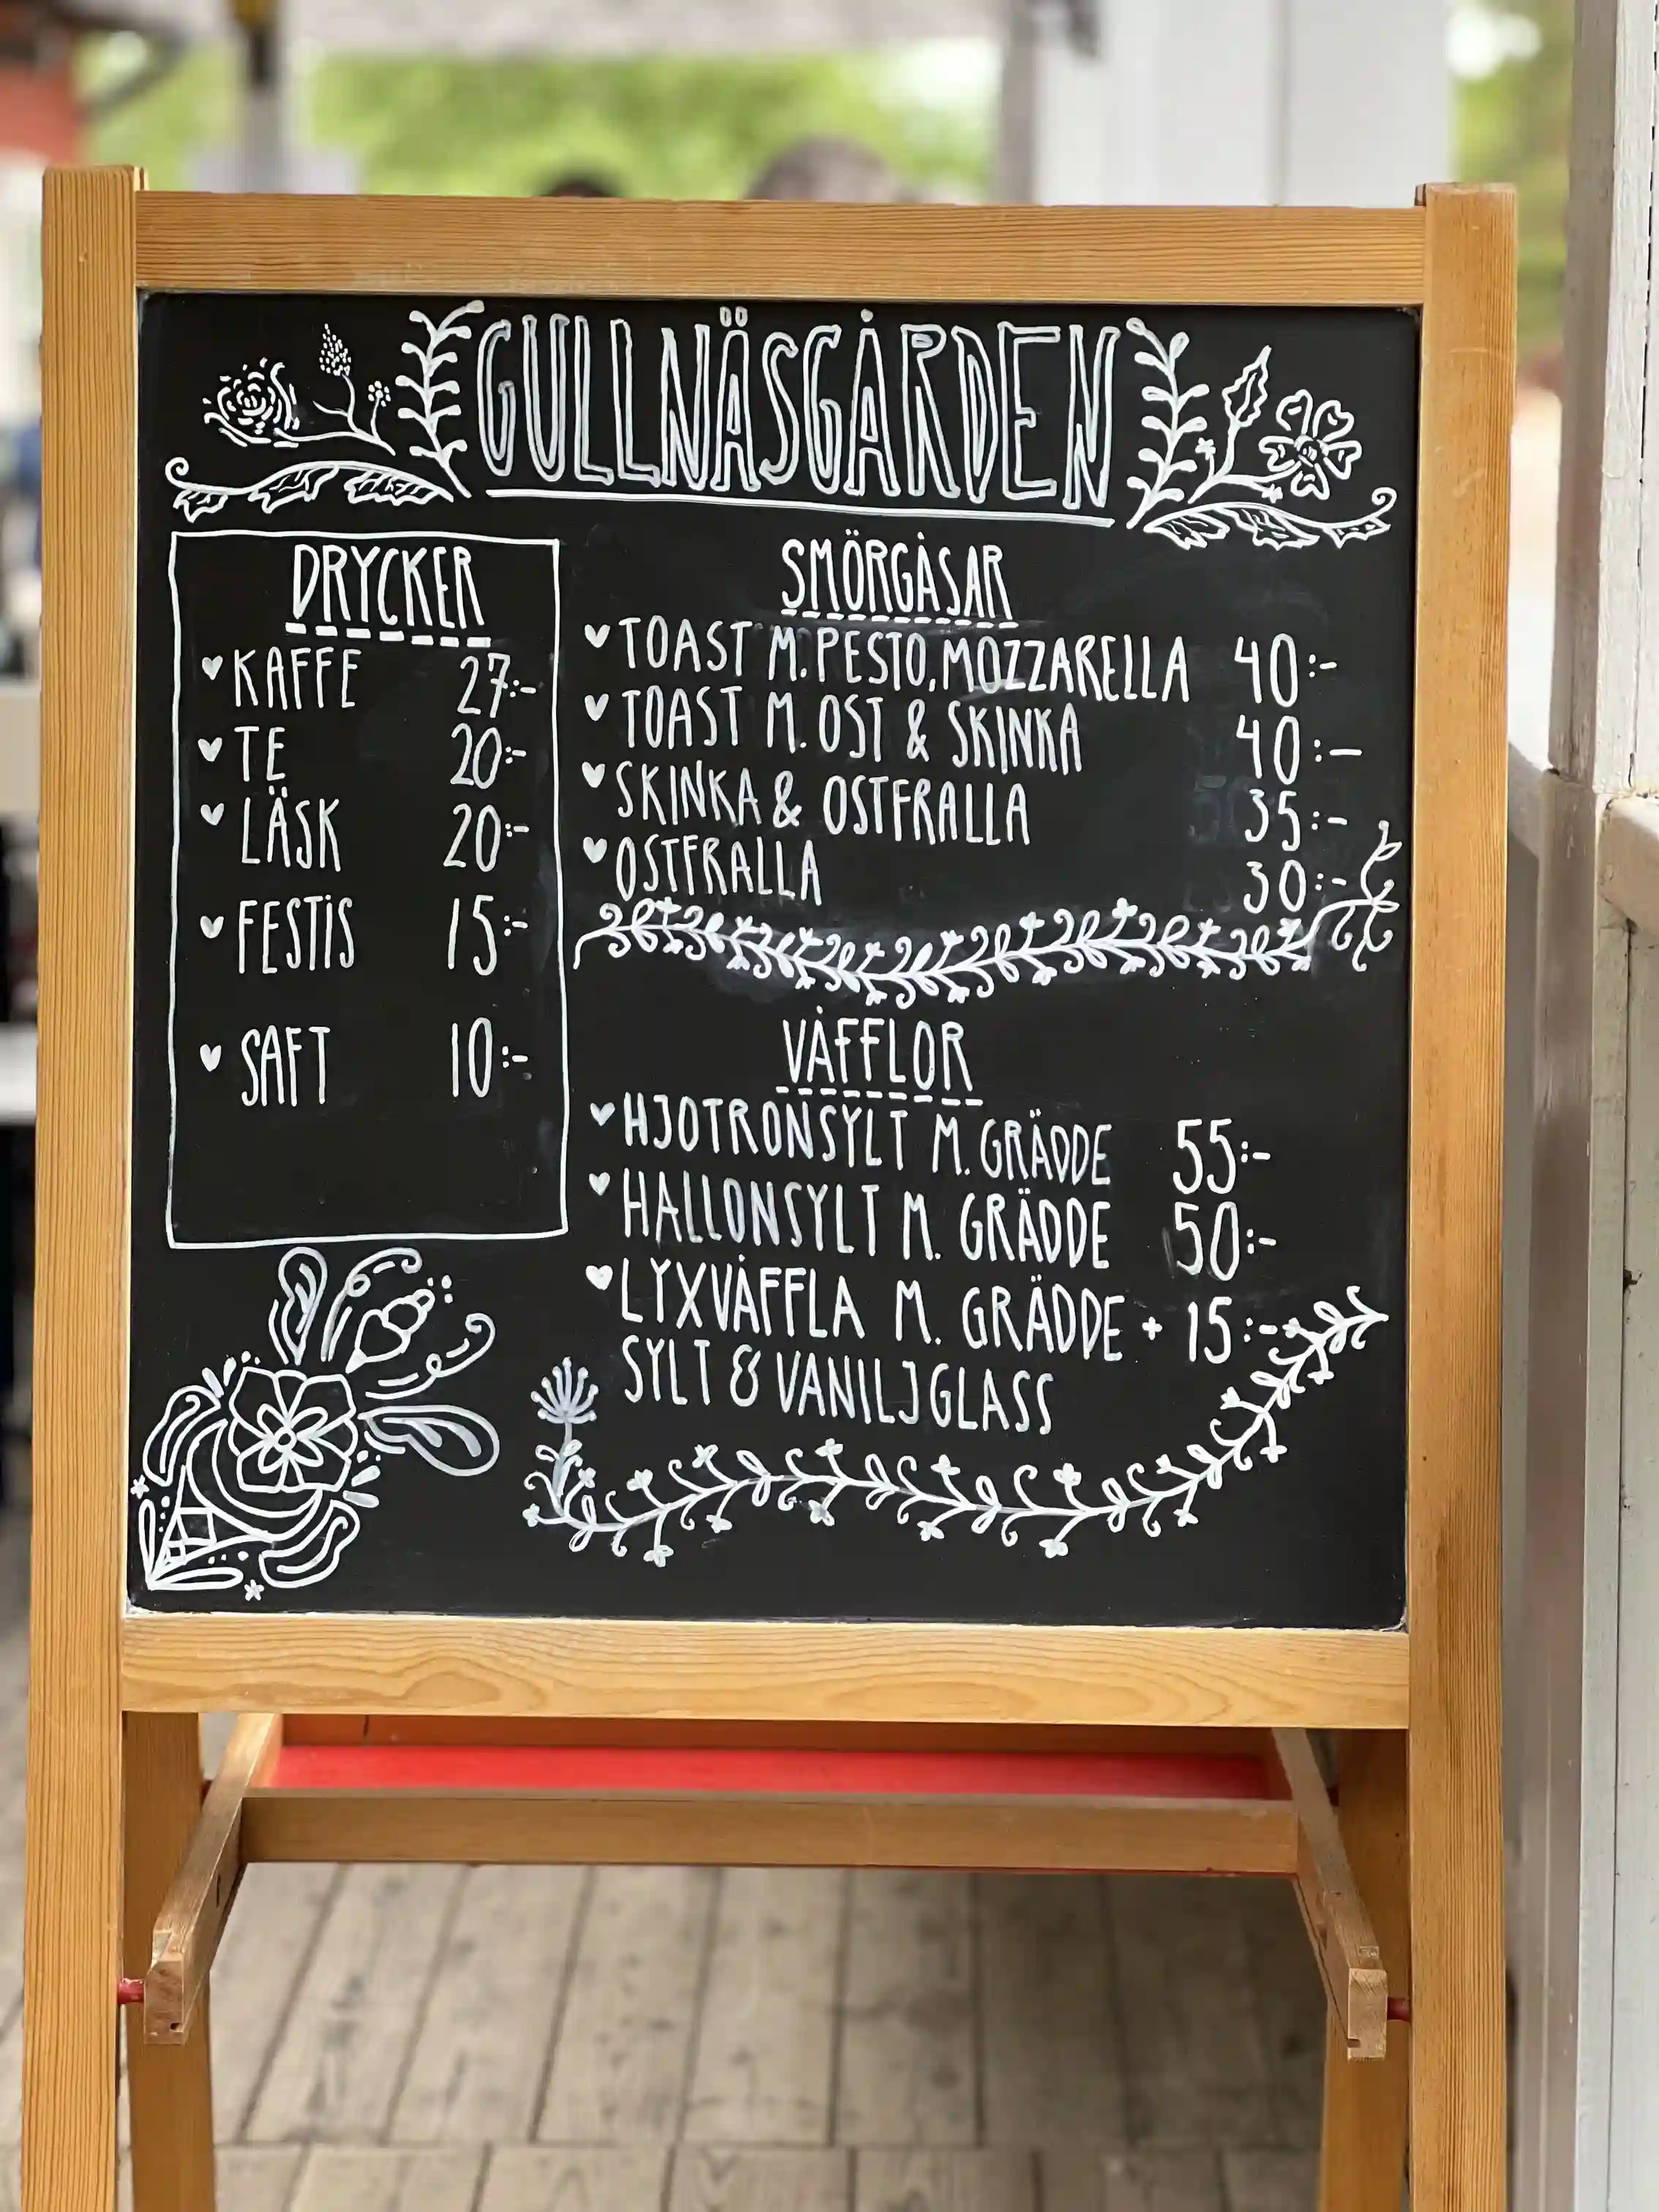 GULLNÄSGÅRDEN
DRYCKER
KAFFE 27:-
TE 20:-
LÄSK 20:-
FESTIS 15:-
SAFT 10:-
SMÖRGÅSAR
TOAST M. PESTO, MOZZARELLA 40:-
TOAST M. OST & SKINKA 40:-
SKINKA & OSTFRALLA 35:-
OSTFRALLA 30:-
VÅFFLOR
HJOTRONSYLT M. GRÄDDE 55:-
HALLONSYLT M. GRÄDDE 50:-
LYXVÅFFLA M. GRÄDDE + 15:-
SYLT & VANILJGLASS